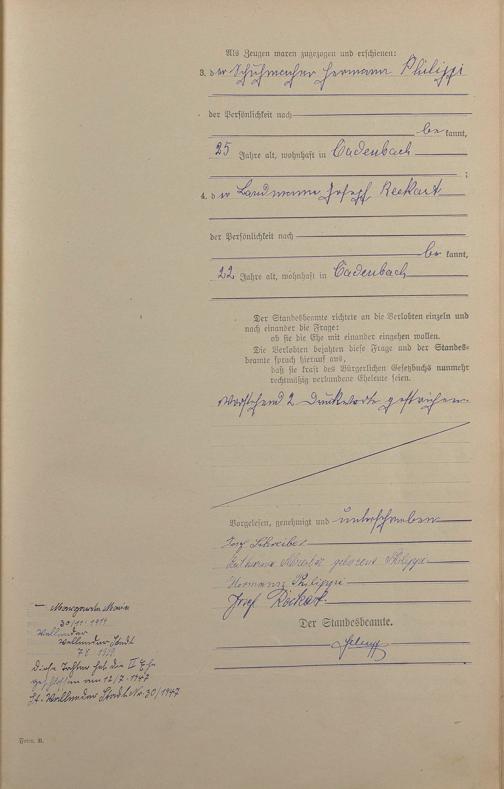 Als Zeugen waren zugezogen und erschienen:
3. der Schuhmacher Hermann Philippi
der Persönlichkeit nach
be kannt,
25 Jahre alt, wohnhaft in Cadenbach
;
4. der Landmann Joseph Reckart
der Persönlichkeit nach
be kannt,
22 Jahre alt, wohnhaft in Cadenbach
Der Standesbeamte richtete an die Verlobten einzeln und
nach einander die Frage:
ob sie die Ehe mit einander eingehen wollen.
Die Verlobten bejahten diese Frage und der Standes-
beamte sprach hierauf aus,
daß sie kraft des Bürgerlichen Gesetzbuchs nunmehr
rechtmäßig verbundene Eheleute seien.
Vorstehend 2 Druckworte gestrichen
Vorgelesen, genehmigt und unterschrieben
Schreiber
Katharina geborene Philippi
Hermann Philippi
Josef Reckart.
Der Standesbeamte.
Maria
30/11.
Diese Tochter hat die II Ehe
geschlossen am 12/7. 1947
Nr. 30/1947
Form. B.